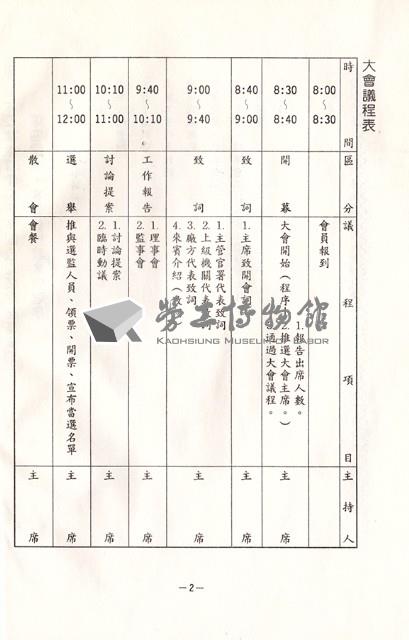 大會議程表
時間 區分 議程項目 主持人
8:00~8:30 會員報到
8:30~8:40 開幕 大會開始(程序
1.報告出席人數。
2.推選大會主席。
通過大會議程。)
主席
8:40~9:00 致詞 1.主席致開會詞 主席
9:00~9:40 致詞 1.主管官署代表致詞
2.上級機關代表
3.廠方代表致詞
4.來賓介紹(致
主席
9:40~10:10。 工作報告 1.理事會
2.監事會
主席
10:10~11:00 討論提案 1.討論提案
2.臨時動議
主席
11:00~12:00 選舉 推與選監人員、領票、開票、宣布當選名單 主席
散會 會餐 主席
勞工博物館
KAOHSIUNG MUSEUM OF LABOR
—2—